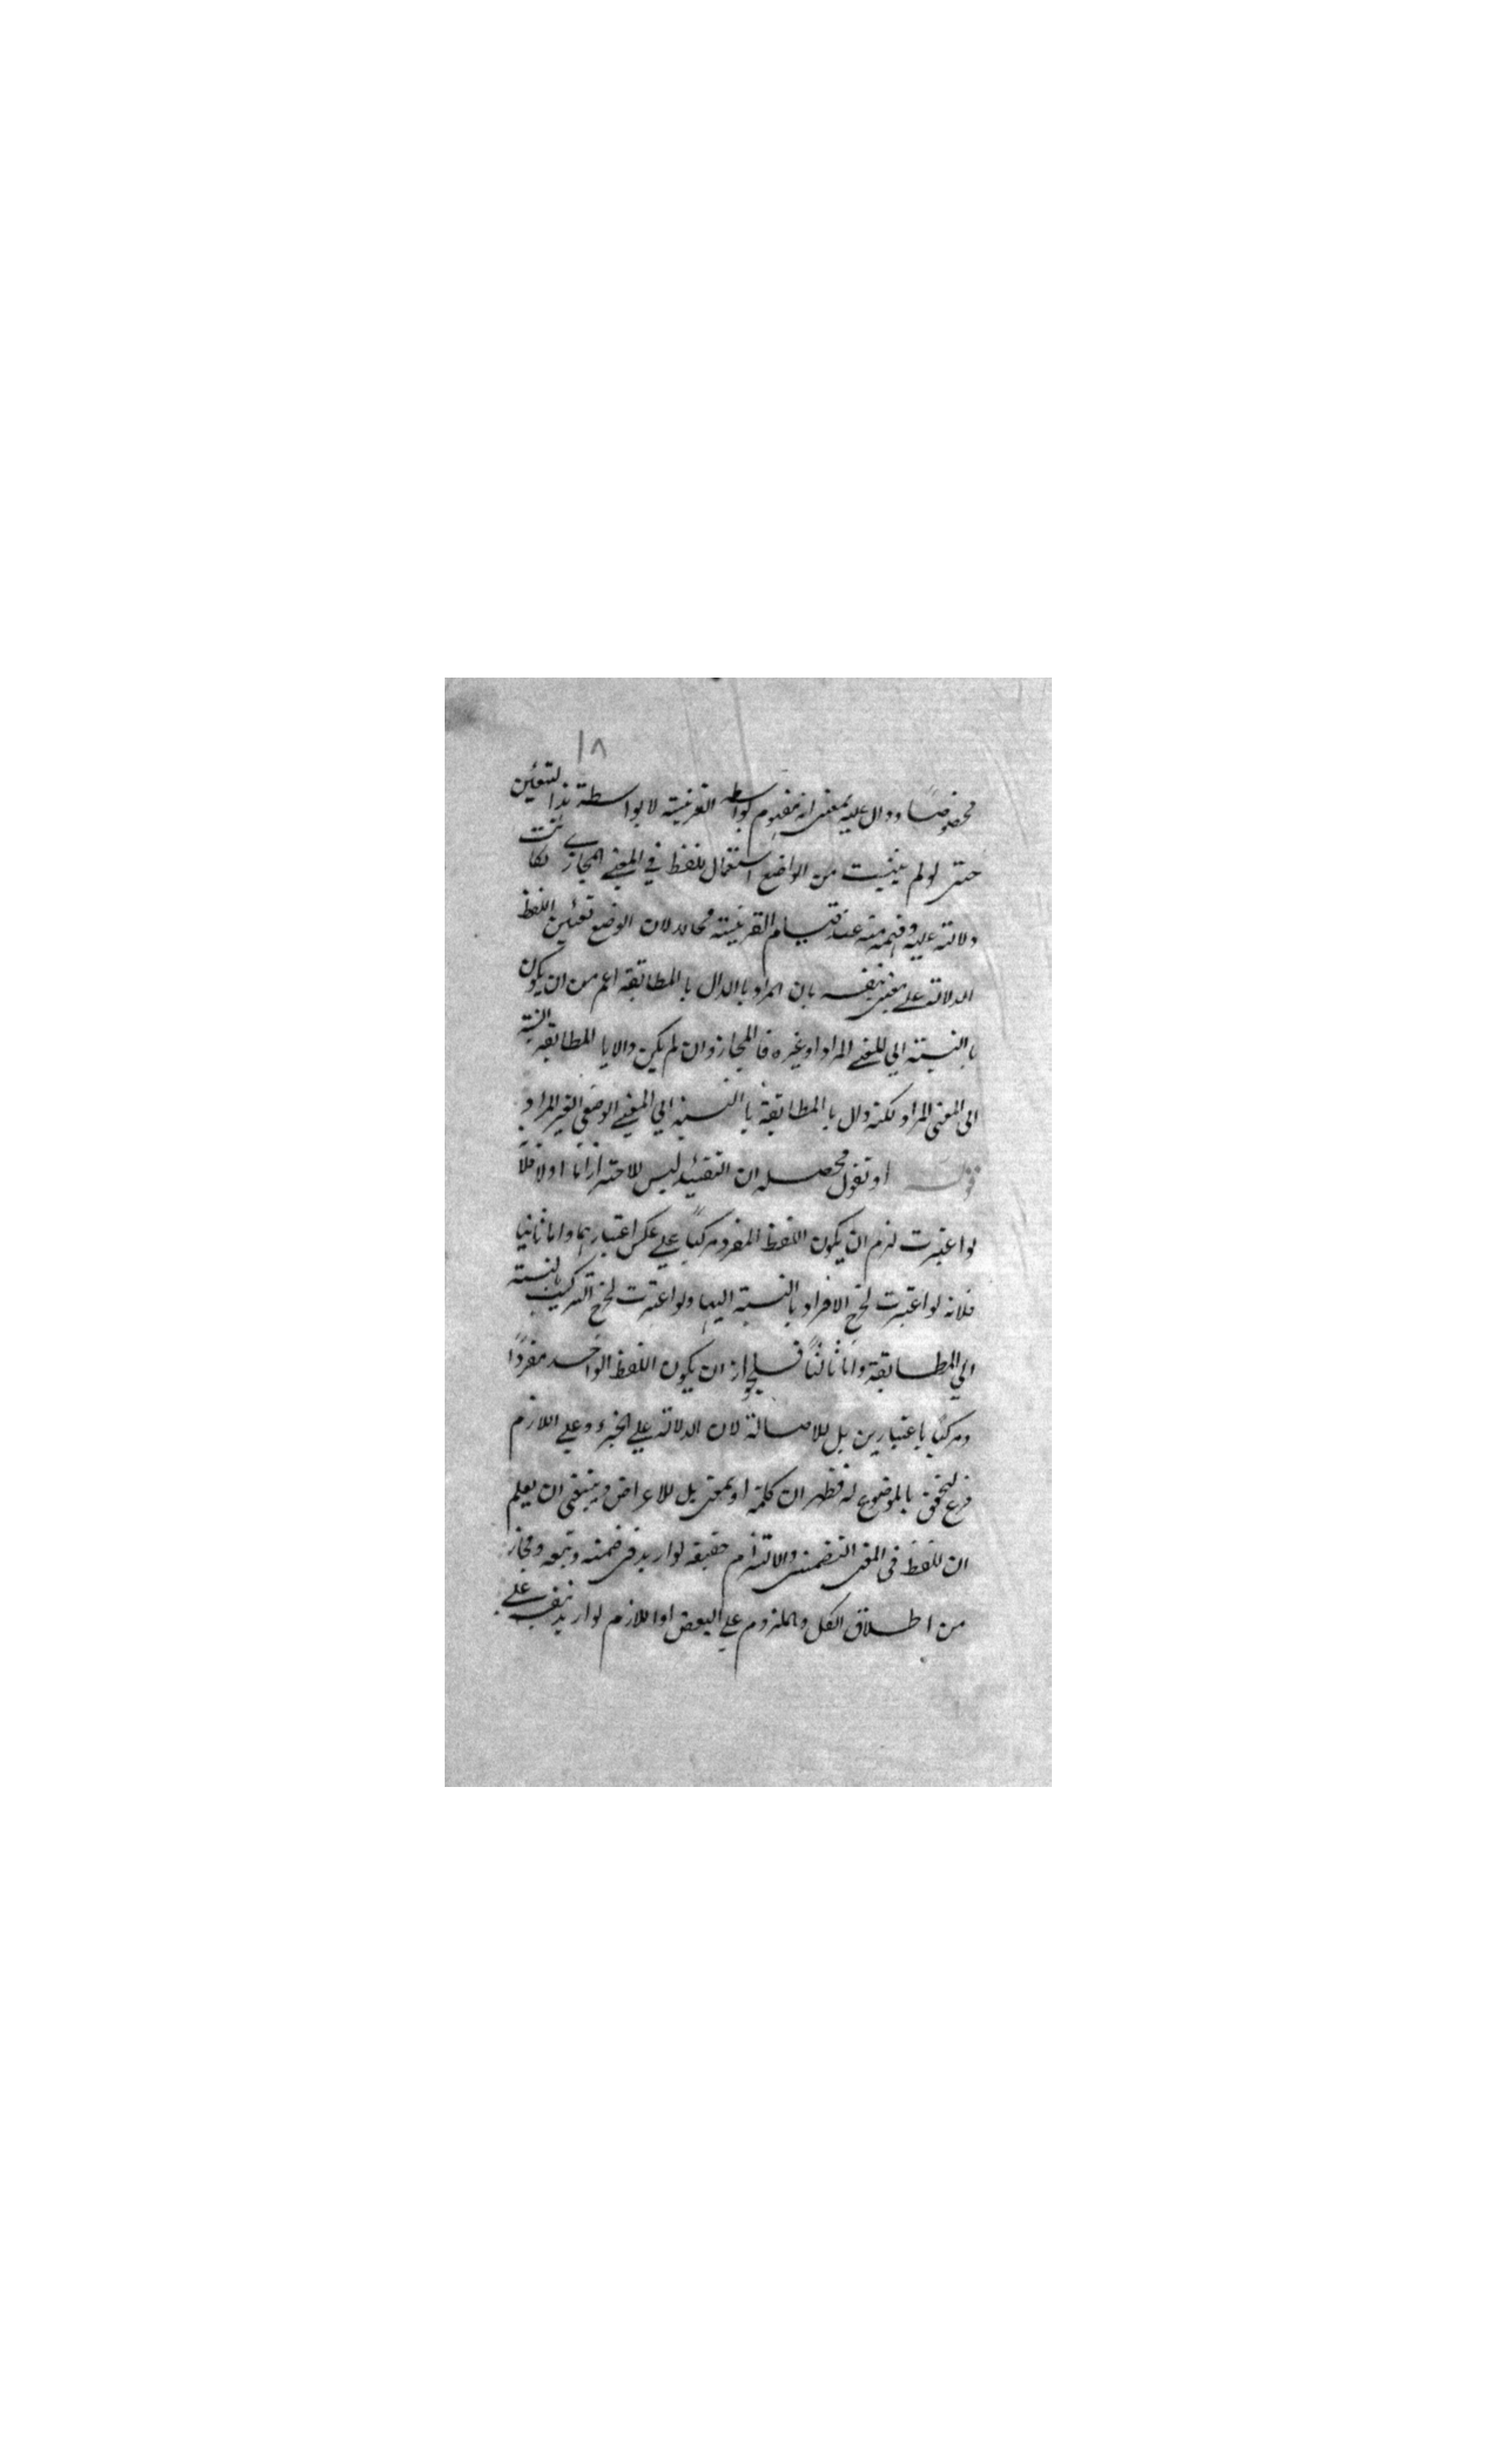 ١٨
مخصوصا ودال عليه بمعنى انه مفهوم بواسطه القرينة لا بواسطة هذا لتعئين
حتى لو لم يثبت من الواضع استعمال للفظ في المعنى المجازي لكانت
دلالته عليه وفهمه منه عند قيام القرينة بحالها لان الوضع تعئين اللفظ
الدلالة على معنى بنفسه بان المراد بالدال بالمطابقة اعم من ان يكون
بالنسبة الى للمعنى المراد او غيره فالمجاز وان لم يكن دالا بالمطابقة بالنسبة
الى المعنى المراد لكنه دال بالمطابقة بالنسبة الى المعنى الوضعى الغير المراد
قوله او تقول محصله ان التقئيد ليس للاحتراز اما اولا فلا
لو اعتبرت لزم ان يكون اللفظ المفرد مركبًا على عكس اعتبارهما واما ثانيا
فلانه لو اعتبرت لخرج الافراد بالنسبة اليها ولو اعتبرت لخرج التركيب بالنسبة
الى المطابقة واما ثالثًا فلجواز ان يكون اللفظ الواحد مفردًا
ومركبًا باعتبارين بل للاصالة لان الدلالة على الجزء وعلى اللازم
فرع لتحقق بالموضوع له فظهر ان كلمة او بمعنى بل للاعراض وينبغى ان يعلم
ان للفظ فى المعنى التضمنى والالتزام حقيقه لو اريد فى ضمنه وتبعه ومجاز
من اطلاق الكل والملزوم على البعض او اللازم لو اريد بنفسه على